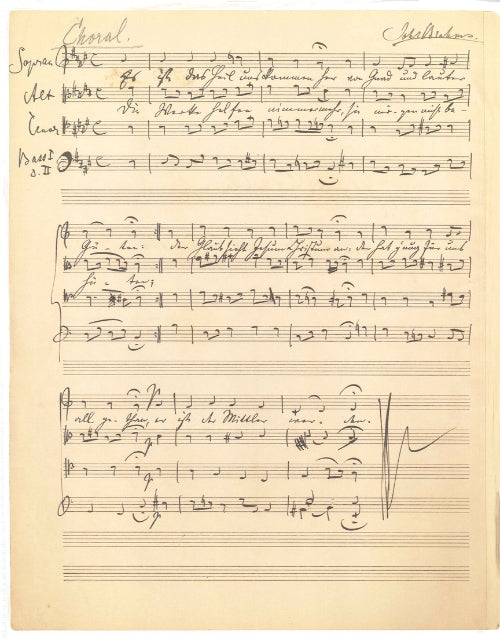 Choral. Johs Brahms.
Sopran
Es ist das Heil uns kommen her von Gnad und lauter
Alt
Die Werke helfen nimmermehr, sie mögen nicht be-
Tenor
Bass I
u. II
Gü - ten: der Glaub sieht Jesum Christum an: der hat g'nug für uns
hü - ten;
all ge - than, er ist der Mittler wor - den.